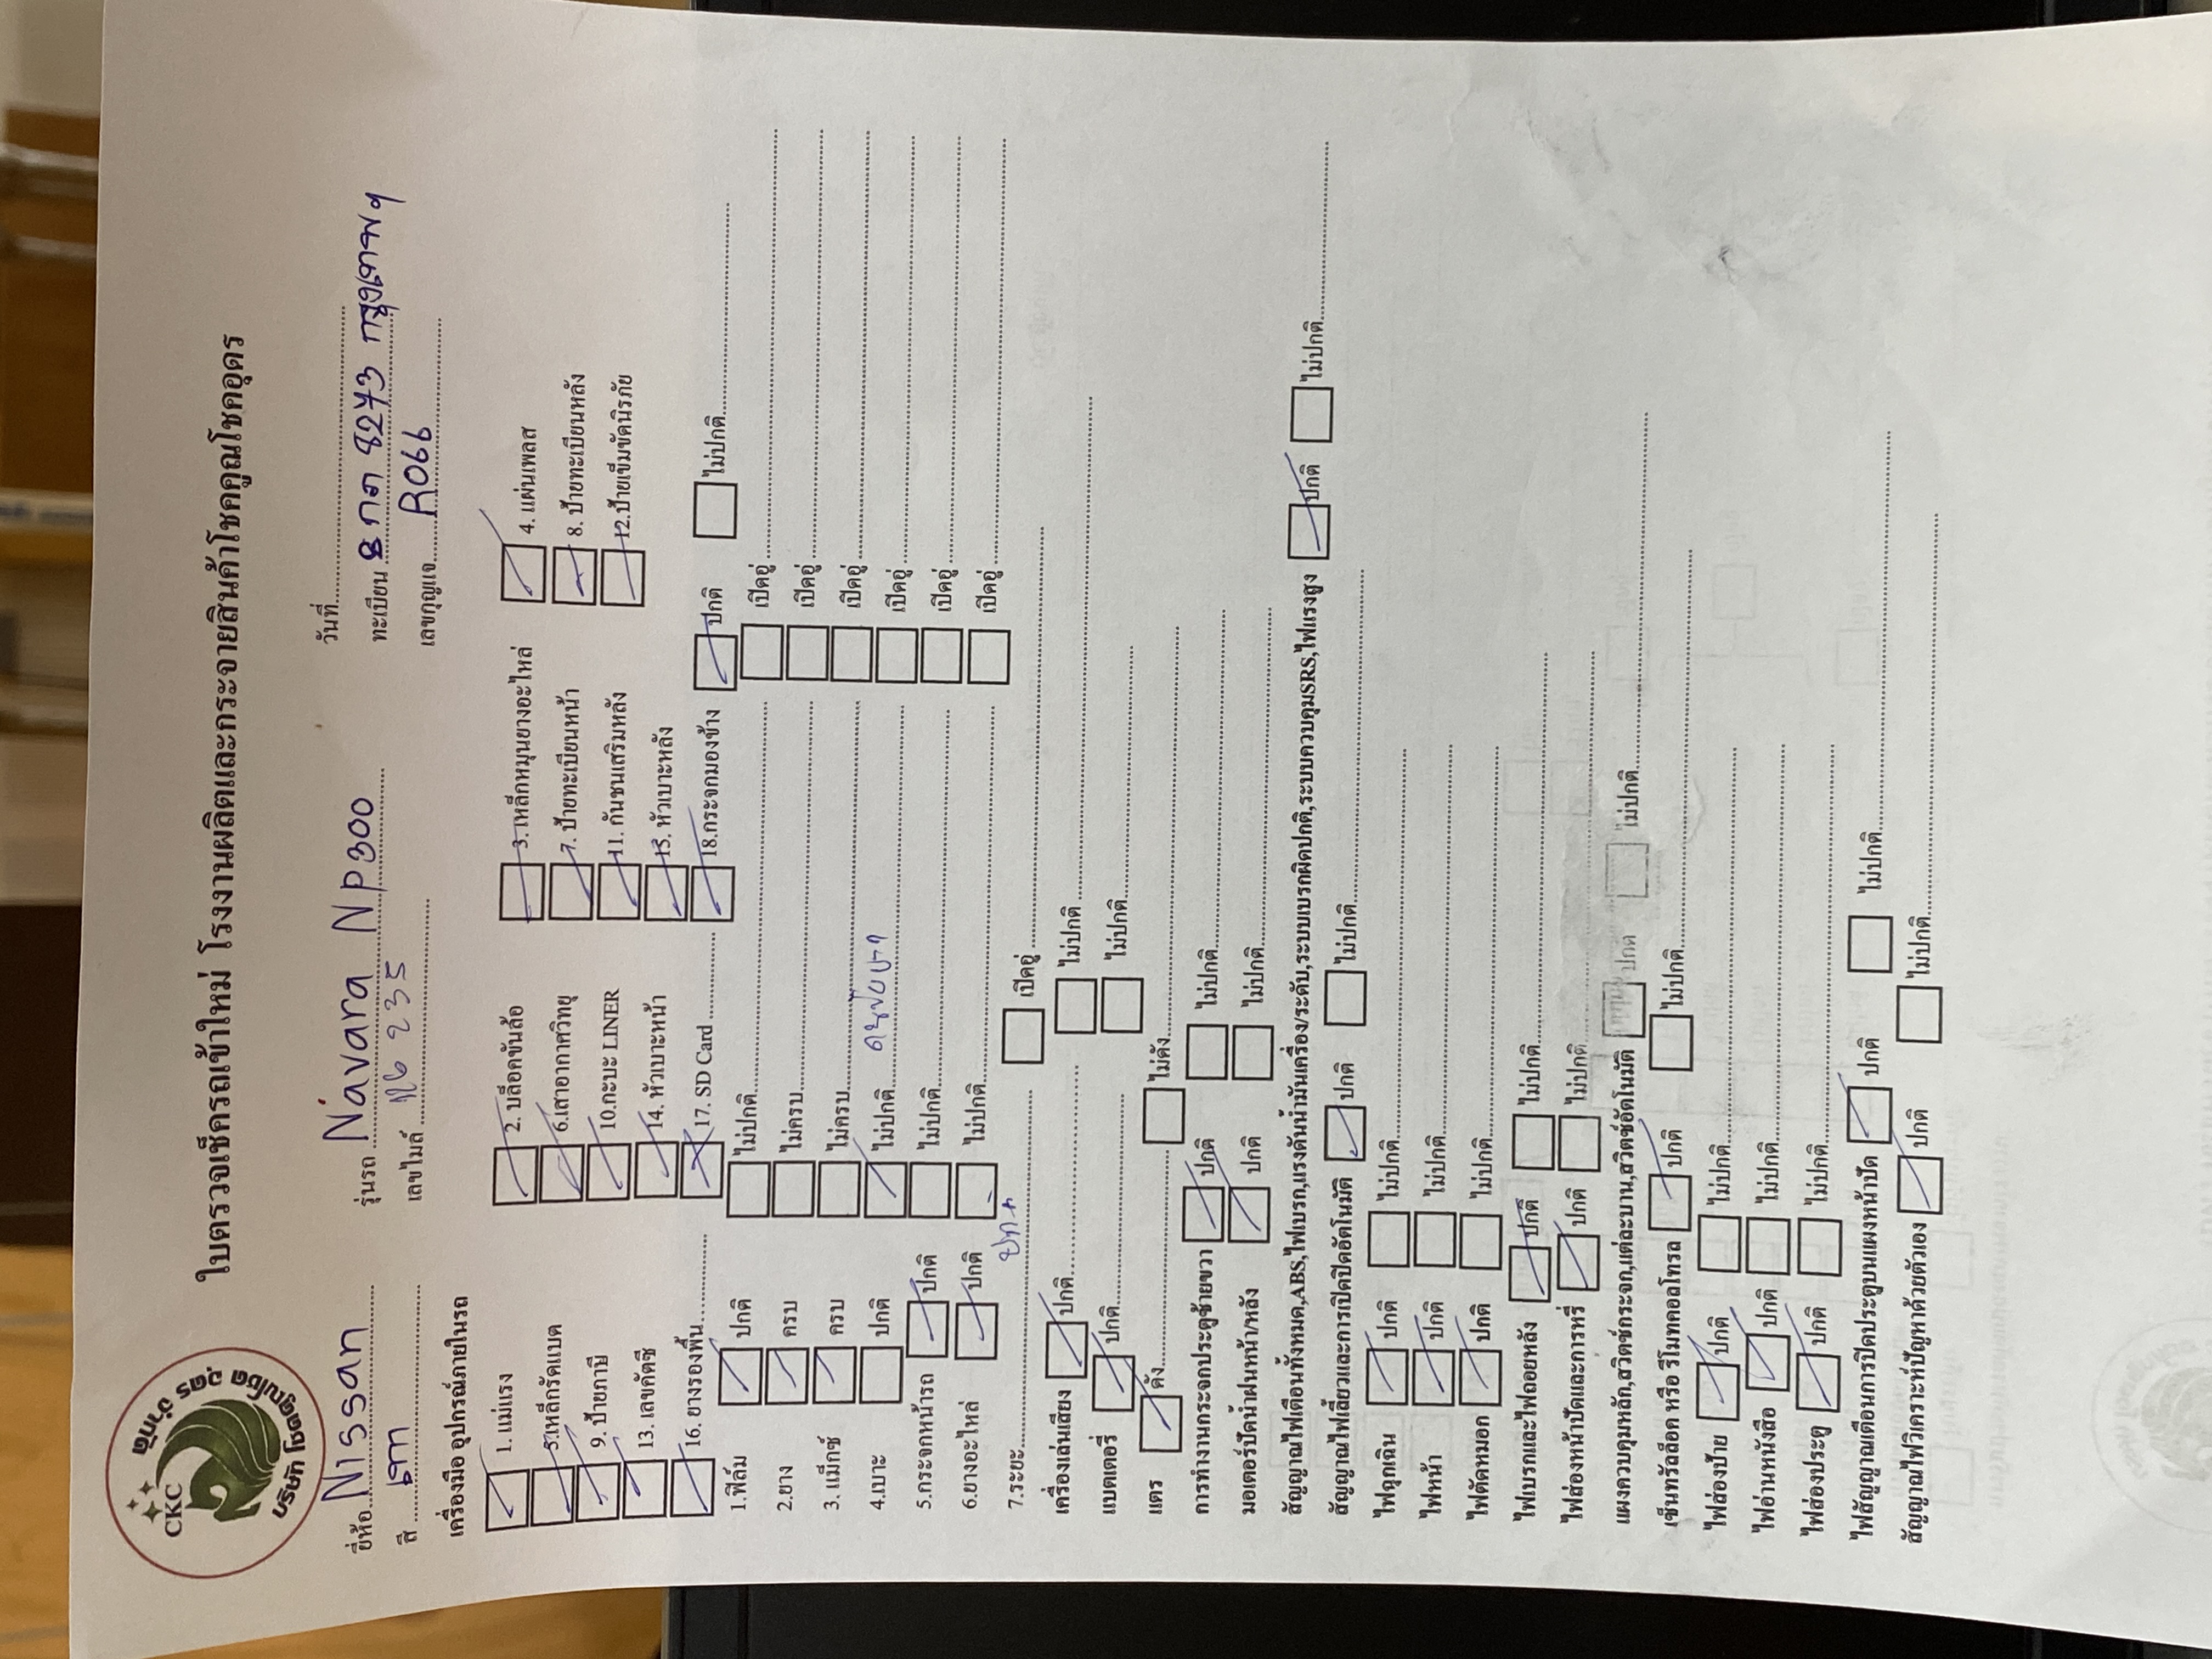 CKC
บริษัท โชคคูณโชค อุดร จำกัด
ใบตรวจเช็ครถเข้าใหม่ โรงงานผลิตและกระจายสินค้าโชคคูณโชคอุดร
วันที่
ยี่ห้อ Nissan รุ่นรถ Navara NP300 ทะเบียน 8 กต 8273 กรุงเทพฯ
สี เทา เลขไมล์ 116 235 เลขกุญแจ R066
เครื่องมือ อุปกรณ์ภายในรถ
1. แม่แรง 2. บล็อคขันล้อ 3.เหล็กหมุนยางอะไหล่ 4. แผ่นเพลส
5.เหล็กรัดแบต 6.เสาอากาศวิทยุ 7. ป้ายทะเบียนหน้า 8. ป้ายทะเบียนหลัง
9.ป้ายภาษี 10.กะบะ LINER 11. กันชนเสริมหลัง 12.ป้ายเข็มขัดนิรภัย
13. เลขคัดซี 14. หัวเบาะหน้า 15. หัวเบาะหลัง
16. ยางรองพื้น 17. SD Card 18.กระจกมองข้าง ปกติ ไม่ปกติ
1.ฟิล์ม ปกติ ไม่ปกติ เปิดอู่
2.ยาง ครบ ไม่ครบ เปิดอู่
3. แม็กซ์ ครบ ไม่ครบ เปิดอู่
4.เบาะ ปกติ ไม่ปกติ เปิดอู่
5.กระจกหน้ารถ ปกติ ไม่ปกติ เปิดอู่
6.ยางอะไหล่ ปกติ ไม่ปกติ เปิดอู่
7.ระยะ เปิดอู่
เครื่องเล่นเสียง ปกติ ไม่ปกติ
แบตเตอรี่ ปกติ ไม่ปกติ
แตร ดัง ไม่ดัง
การทำงานกระจกประตูซ้ายขวา ปกติ ไม่ปกติ
มอเตอร์ปัดน้ำฝนหน้า/หลัง ปกติ ไม่ปกติ
สัญญาณไฟเตือนทั้งหมด,ABS,ไฟเบรก,แรงดันน้ำมันเครื่อง/ระดับ,ระบบเบรกผิดปกติ,ระบบควบคุมSRS,ไฟแรงสูง ปกติ ไม่ปกติ
สัญญาณไฟเลี้ยวและการเปิดปิดอัตโนมัติ ปกติ ไม่ปกติ
ไฟฉุกเฉิน ปกติ ไม่ปกติ
ไฟหน้า ปกติ ไม่ปกติ
ไฟตัดหมอก ปกติ ไม่ปกติ
ไฟเบรกและไฟถอยหลัง ปกติ ไม่ปกติ
ไฟส่องหน้าปัดและการหรี่ ปกติ ไม่ปกติ
แผงควบคุมหลัก,สวิตซ์กระจก,แต่ละบาน,สวิตช์อัตโนมัติ ปกติ ไม่ปกติ
เซ็นทรัลล็อค หรือ รีโมทคอลโทรล ปกติ ไม่ปกติ
ไฟส่องป้าย ปกติ ไม่ปกติ
ไฟอ่านหนังสือ ปกติ ไม่ปกติ
ไฟส่องประตู ปกติ ไม่ปกติ
ไฟสัญญาณเตือนการปิดประตูบนแผงหน้าปัด ปกติ ไม่ปกติ
สัญญาณไฟวิเคราะห์ปัญหาด้วยตัวเอง ปกติ ไม่ปกติ